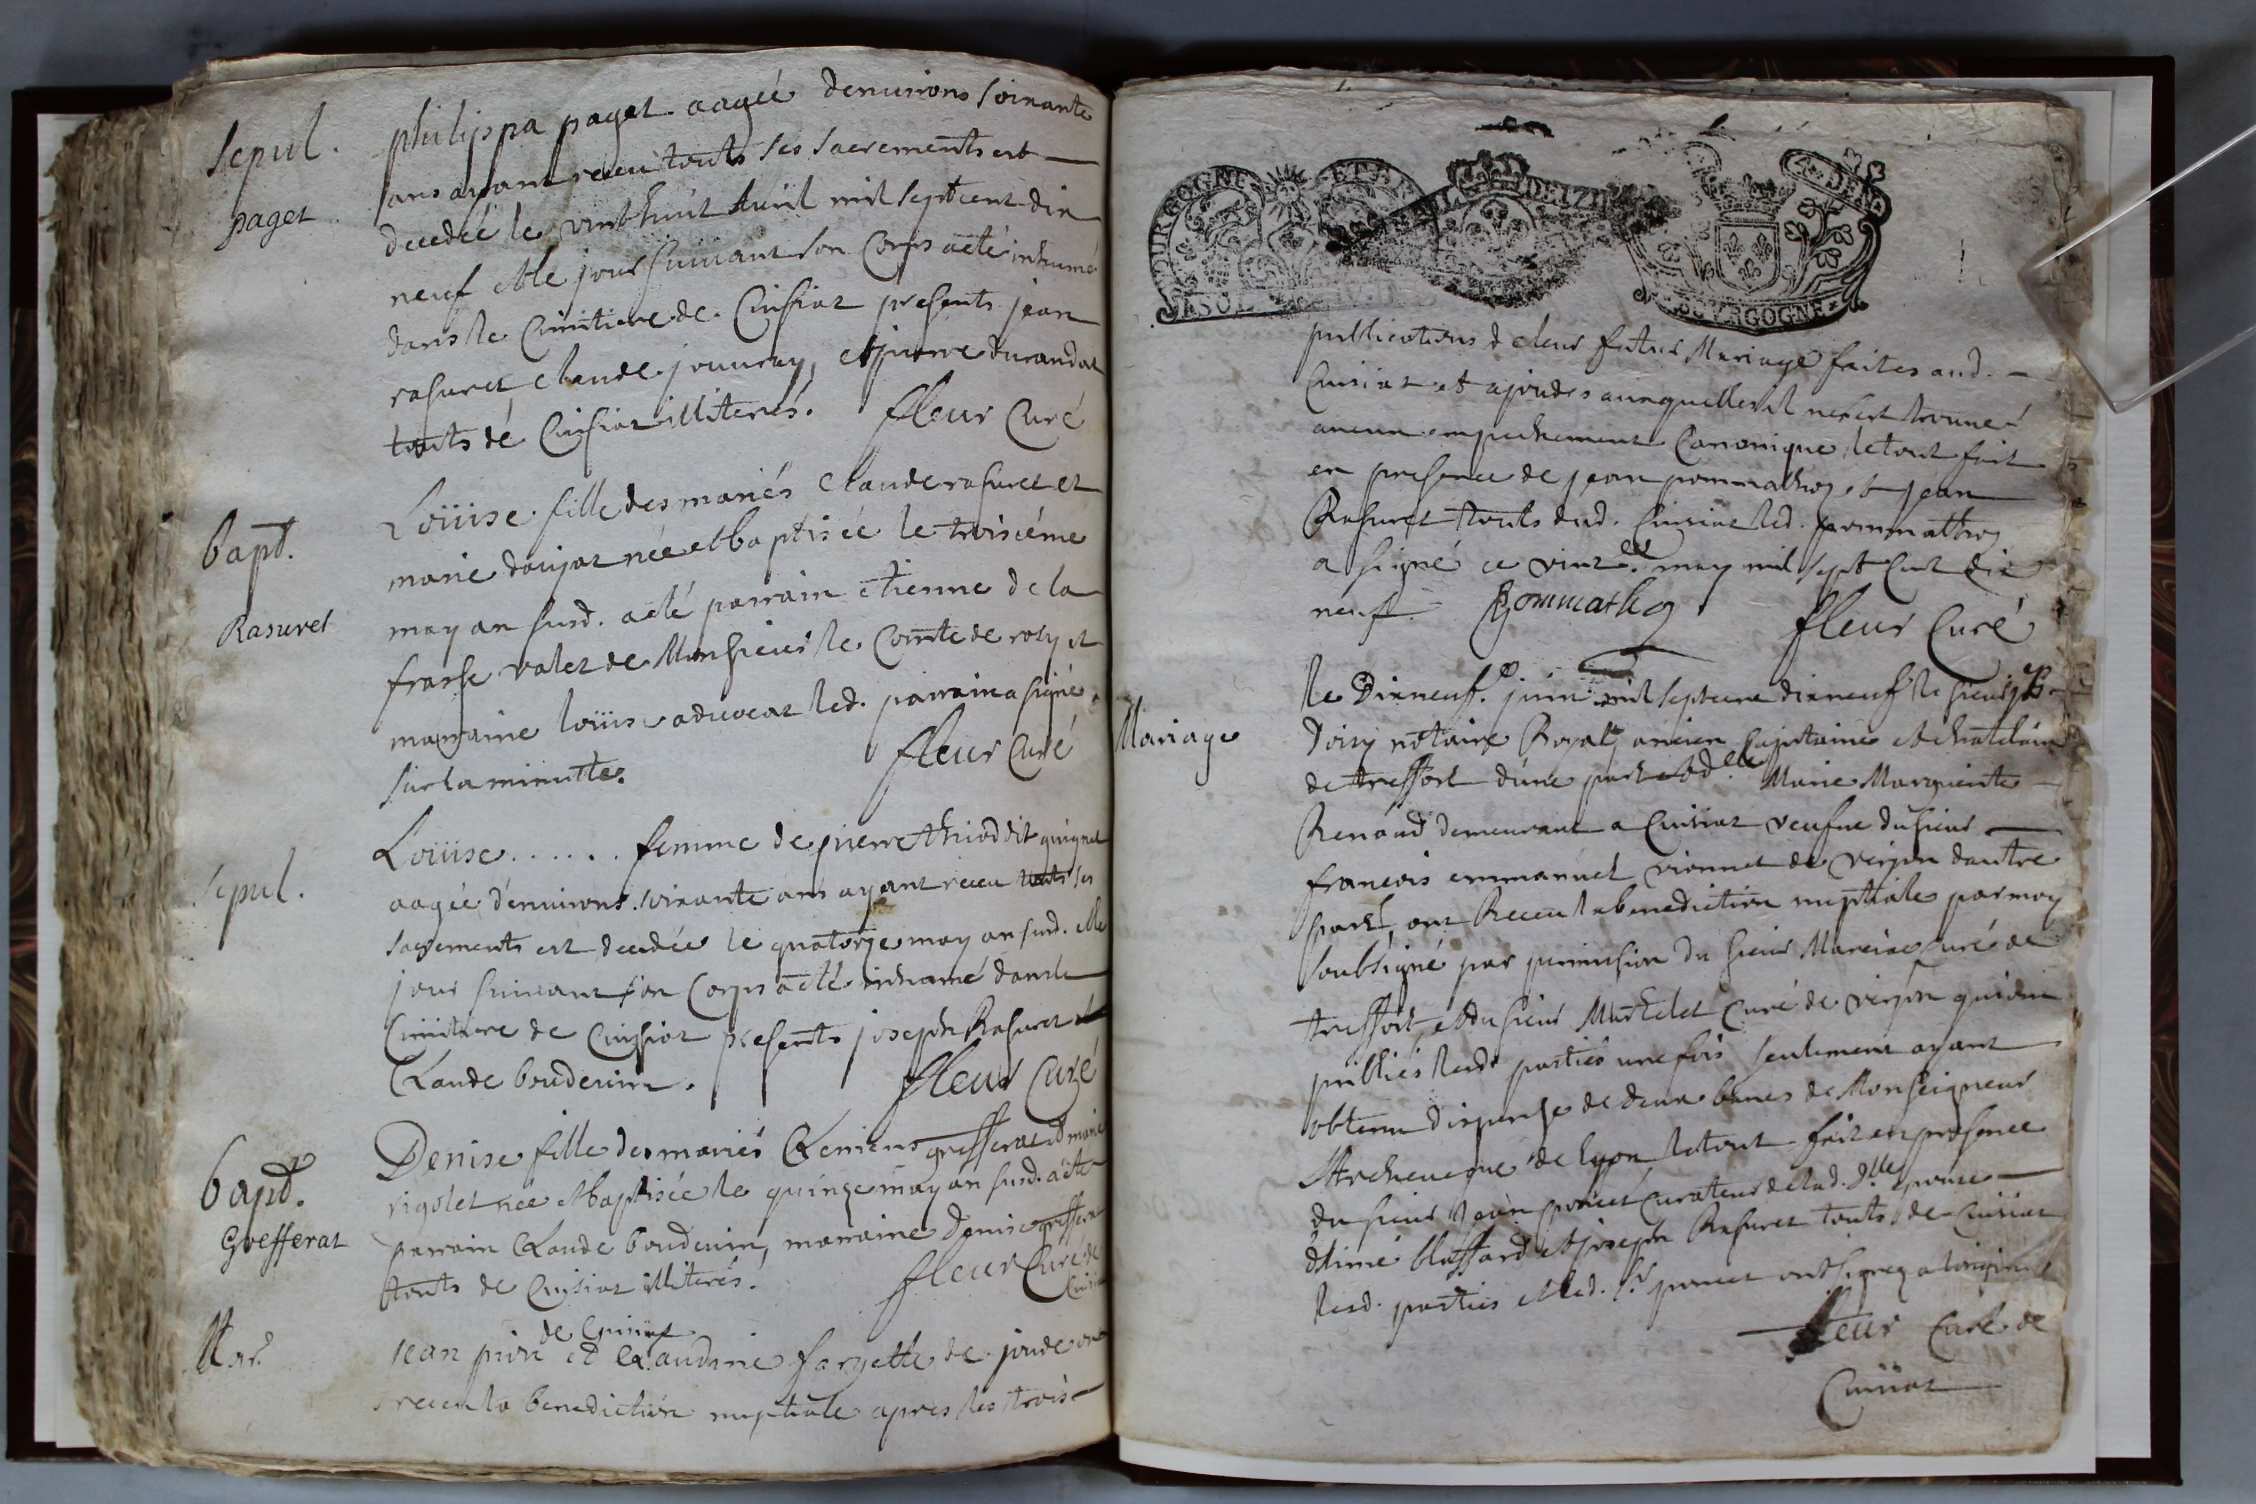 sepul.
paget
philippa paget aagée denuirons soixante
ans ayant receu touts ses sacrements est
decedée le vint huit Auril mil sept cent dix
neuf et le jour suiuant son corps a eté inhumé
dans le cimitiere de Cuisiat presents jean
rasuret, claude jouuray, et pierre durandat
touts de Cuisiat illiterés. fleur Curé
bapt.
Rasuret
Loüise fille des mariés claude rasuret et
marie doujat née et baptisée le troisiéme
may an susd. a eté parrain etienne de la
frasse valet de Monsieur le Comte de rosy et
marraine loüise aduocat led. parrain a signé
sur la minutte. fleur Curé
sepul.
Loüise...... femme de pierre thiod dit guignet
aagée d'enuirons soixante ans ayant receu touts ses
sacrements est decedée le quatorze may an susd. et le
jour suiuant son Corps a eté inhumé dans le
Cimitiere de Cuisiat presents joseph Rasuret et
Claude bouduin. fleur Curé
bapt.
Grefferat
Denise fille des mariés Clemens grefferat et marie
rigolet née et baptisée le quinze may an susd. a eté
parrain Claude bouduin, marraine Denise grefferat
touts de Cuisiat illiterés. fleur Curé de
Cuisiat
Mar.
de Cuisiat
jean pion et Claudine fargette de joude ont
receu la benediction nuptiale apres les trois
BOURGOGNE
BOURGOGNE
publications de leur futur Mariage faites aud.
Cuisiat et a joudes aux quelles il ne s'est trouué
aucun empechement Canonique, le tout fait
en presence de jean pommathoy et jean
Rasuret touts dud. Cuisiat led. pommathoy
a signé ce vint may mil sept cent dix
neuf. Pommathoy fleur Curé
Mariage
le Dixneuf.e juin mil sept cent dixneuf le sieur jB
Doisy notaire Royal, ancien Capitaine et chatelain
de treffort d'une part et d.elle Marie Marguerite
Renaud demeurant a Cuisiat veufue du sieur
francois emmanuel vionnet de verjon d'autre
part, ont Receu la benediction nuptiale par moy
soubsigné par permission du sieur curé de
treffort, et du sieur curé de verjon qui ont
publiés lesd. parties une fois seulement ayant
obtenu dispense de deux bancs de Monseigneur
l'Archeueque de lyon le tout fait en presence
du sieur jean poncet Curateur de lad. d.lle epouse
d'Aimé bluffard et joseph Rasuret touts de Cuisiat
lesd. parties et led. s.r poncet ont signez a l'original
fleur Curé de
Cuisiat